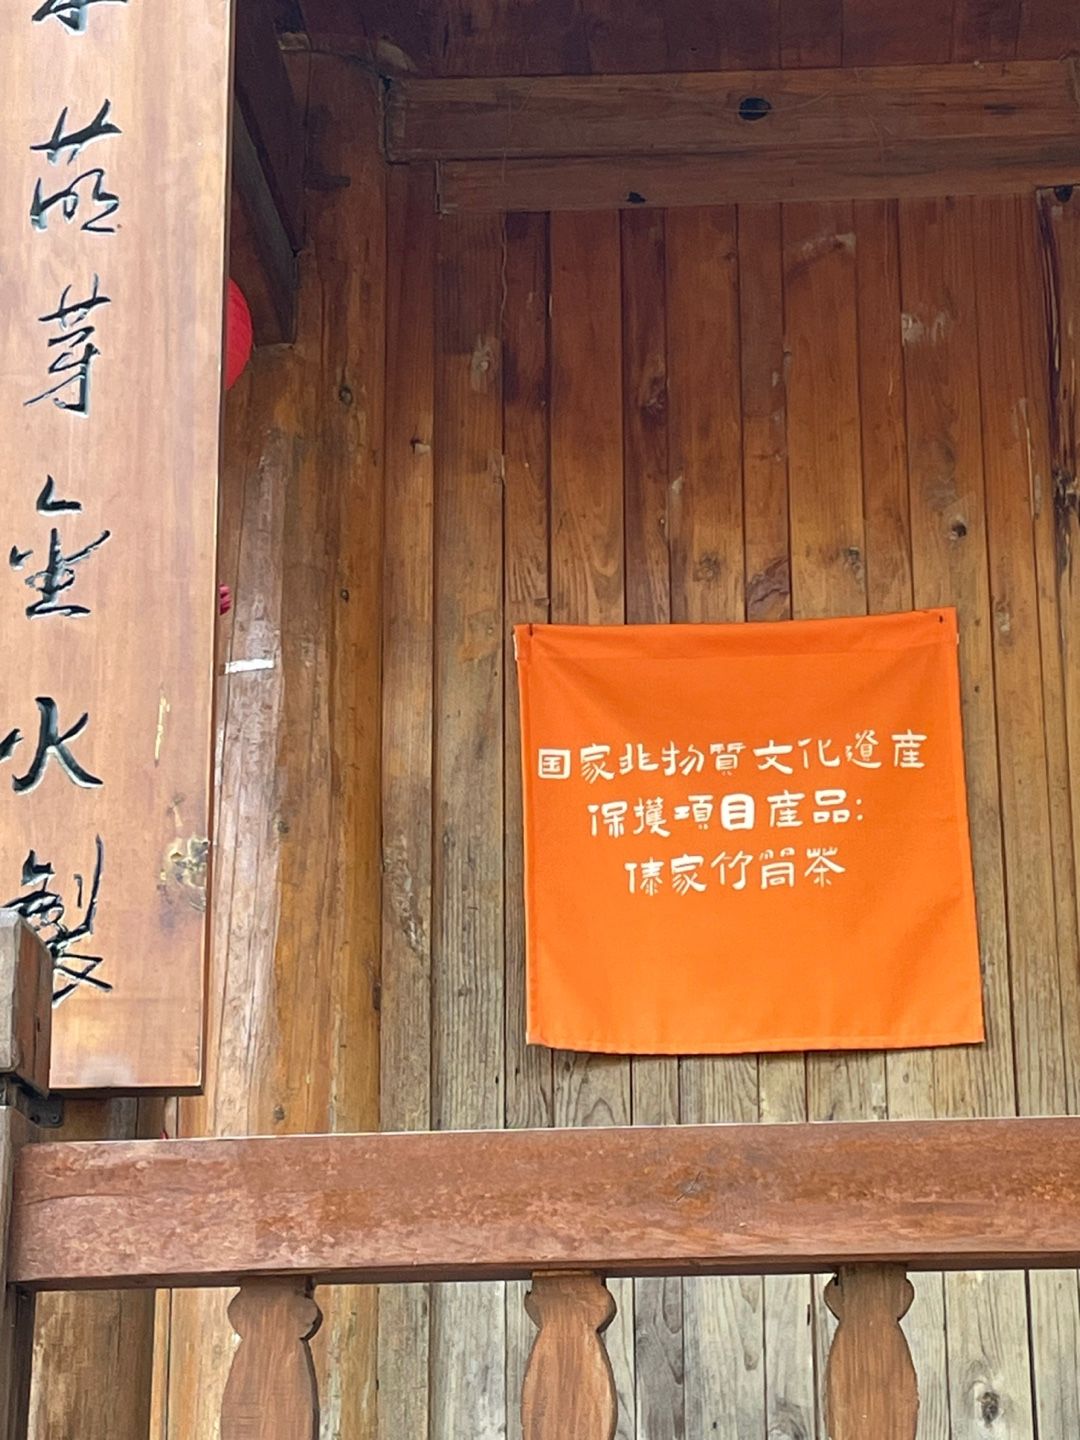 萌芽金火製
国家非物質文化遺産
保護項目産品:
傣家竹筒茶